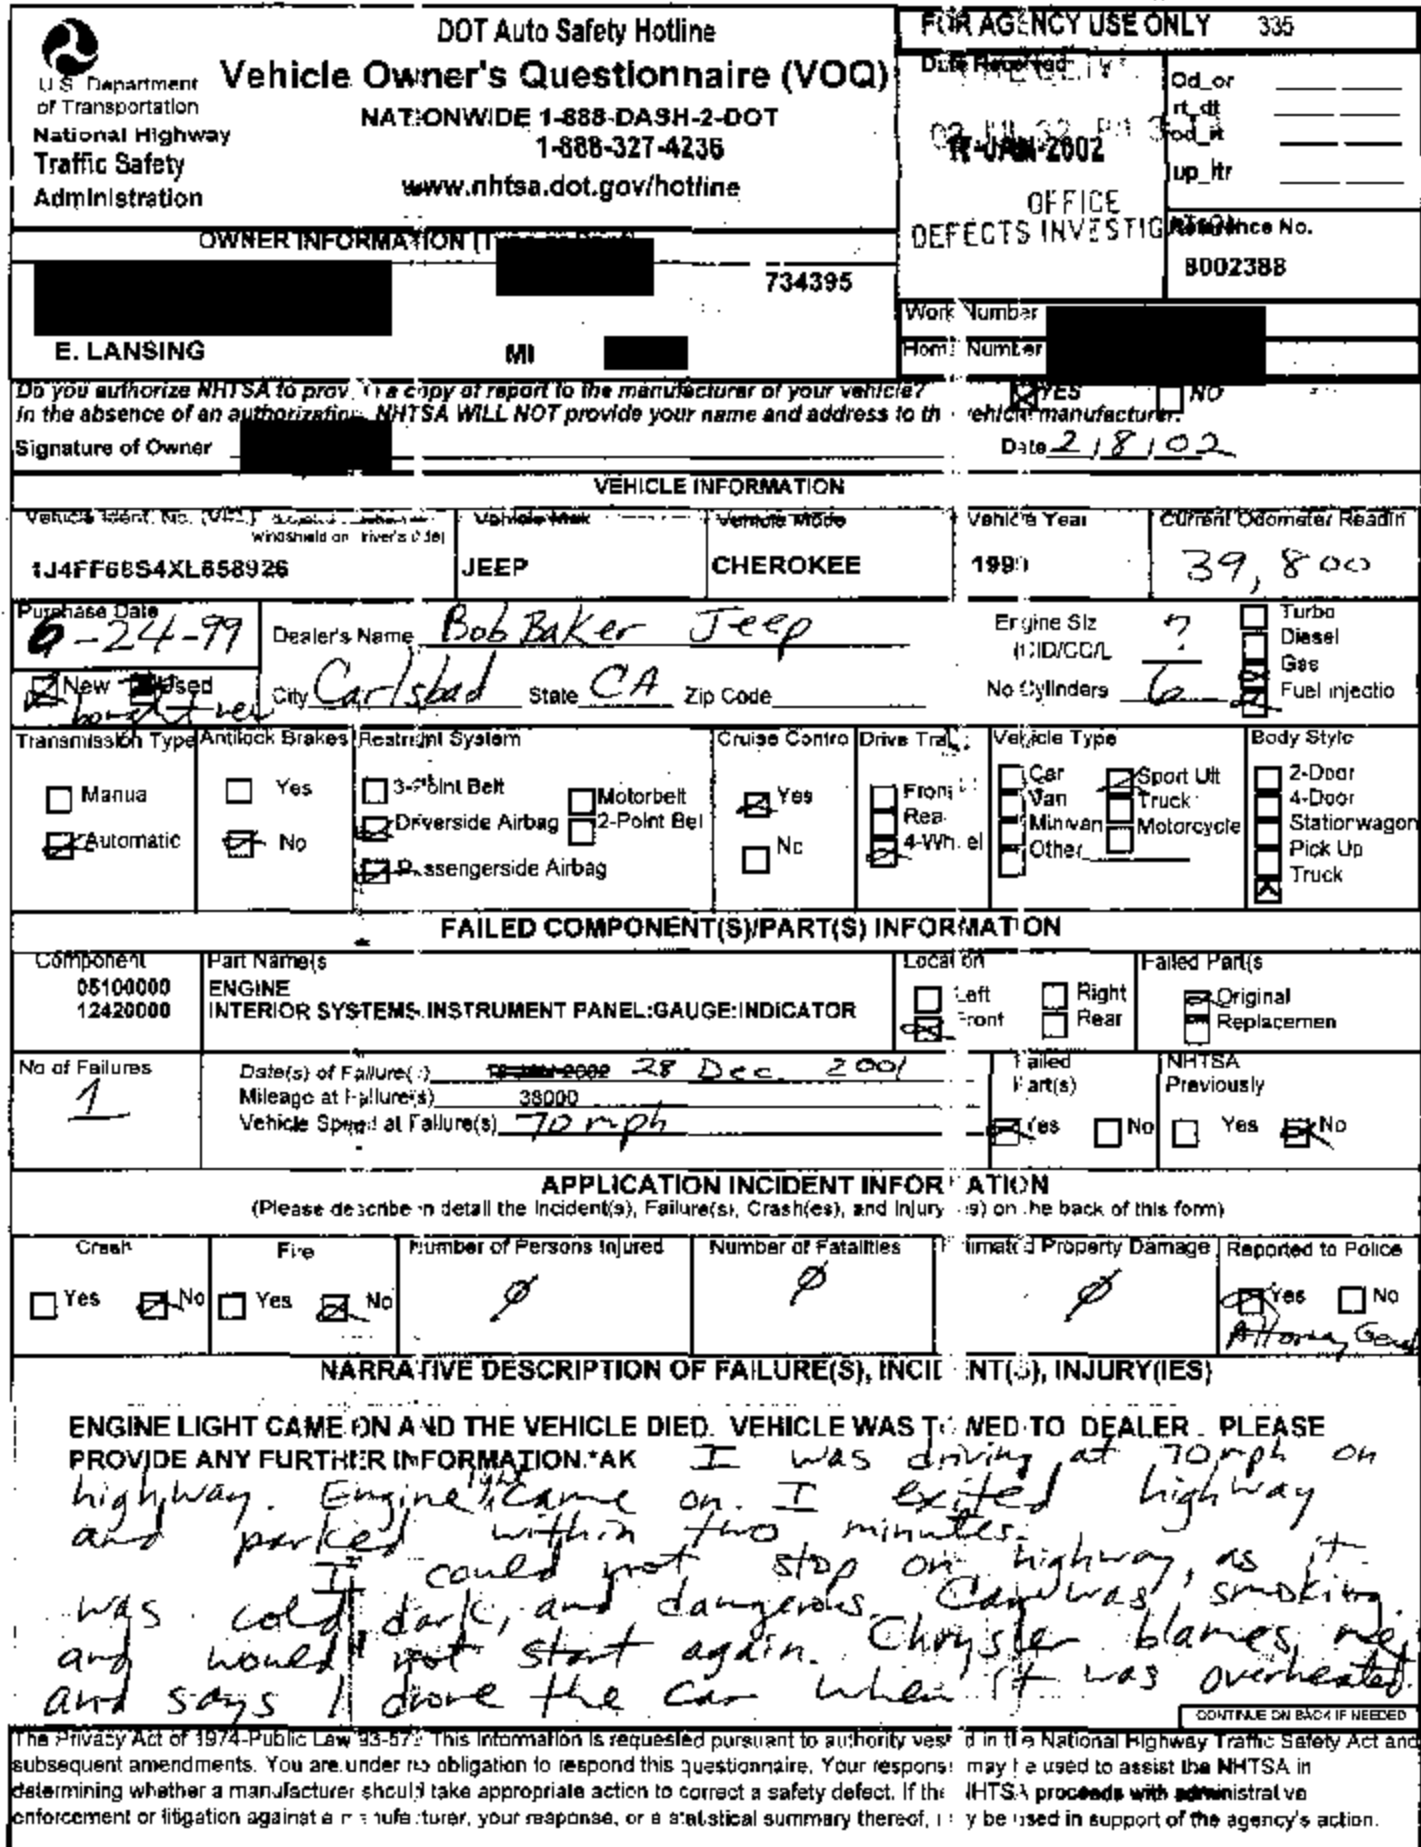 DOT Auto Safety Hotline
Vehicle Owner's Questionnaire (VOQ)
NATIONWIDE 1-888-DASH-2-DOT
1-888-327-4236
www.nhtsa.dot.gov/hotline
U.S. Department
of Transportation
National Highway
Traffic Safety
Administration
FOR AGENCY USE ONLY 335
Date Received
Od_or
rt_dt
od_rt
up_ltr
-JAN-2002
OFFICE
DEFECTS INVESTIGATION
Reference No.
8002388
OWNER INFORMATION
734395
E. LANSING MI
Work Number
Home Number
Do you authorize NHTSA to provide a copy of report to the manufacturer of your vehicle? YES NO
In the absence of an authorization, NHTSA WILL NOT provide your name and address to the vehicle manufacturer.
Signature of Owner Date 2/8/02
VEHICLE INFORMATION
Vehicle Ident. No. (VIN) Vehicle Mak Vehicle Mode Vehicle Year Current Odometer Readin
windshield on driver's side)
1J4FF68S4XL658926 JEEP CHEROKEE 1999 39,800
Purchase Date
6-24-99
New Used
bought new
Dealer's Name Bob Baker Jeep
City Carlsbad State CA Zip Code
Engine Siz ?
(CID/CC/L
No Cylinders 6
Turbo
Diesel
Gas
Fuel injectio
Transmission Type Antilock Brakes Restraint System Cruise Contro Drive Trai Vehicle Type Body Style
Manua
Automatic
Yes
No
3-Point Belt
Driverside Airbag
Passengerside Airbag
Motorbelt
2-Point Bel
Yes
No
Front
Rea
4-Wheel
Car
Van
Minivan
Other
Sport Ult
Truck
Motorcycle
2-Door
4-Door
Stationwagon
Pick Up
Truck
FAILED COMPONENT(S)/PART(S) INFORMATION
Component Part Name(s Location Failed Part(s
05100000 ENGINE
12420000 INTERIOR SYSTEMS:INSTRUMENT PANEL:GAUGE:INDICATOR
Left Right
Front Rear
Original
Replacemen
No of Failures
1
Date(s) of Failure(s) 28 Dec. 2001
Mileage at Failure(s) 38000
Vehicle Speed at Failure(s) 70 mph
Failed
Part(s)
Yes No
NHTSA
Previously
Yes No
APPLICATION INCIDENT INFORMATION
(Please describe in detail the Incident(s), Failure(s), Crash(es), and Injury(ies) on the back of this form)
Crash Fire Number of Persons Injured Number of Fatalities Estimated Property Damage Reported to Police
Yes No Yes No Ø Ø Ø Yes No
Attorney
NARRATIVE DESCRIPTION OF FAILURE(S), INCIDENT(S), INJURY(IES)
ENGINE LIGHT CAME ON AND THE VEHICLE DIED. VEHICLE WAS TOWED TO DEALER. PLEASE
PROVIDE ANY FURTHER INFORMATION.*AK I was driving at 70 mph on
highway. Engine light came on. I exited highway
and parked within two minutes.
I could not stop on highway, as it
was cold, dark, and dangerous. Car was smoking
and would not start again. Chrysler blames me,
and says I drove the car when it was overheated.
CONTINUE ON BACK IF NEEDED
The Privacy Act of 1974-Public Law 93-579 This Information is requested pursuant to authority vested in the National Highway Traffic Safety Act and
subsequent amendments. You are under no obligation to respond this questionnaire. Your response may be used to assist the NHTSA in
determining whether a manufacturer should take appropriate action to correct a safety defect. If the NHTSA proceeds with administrative
enforcement or litigation against a manufacturer, your response, or a statistical summary thereof, may be used in support of the agency's action.